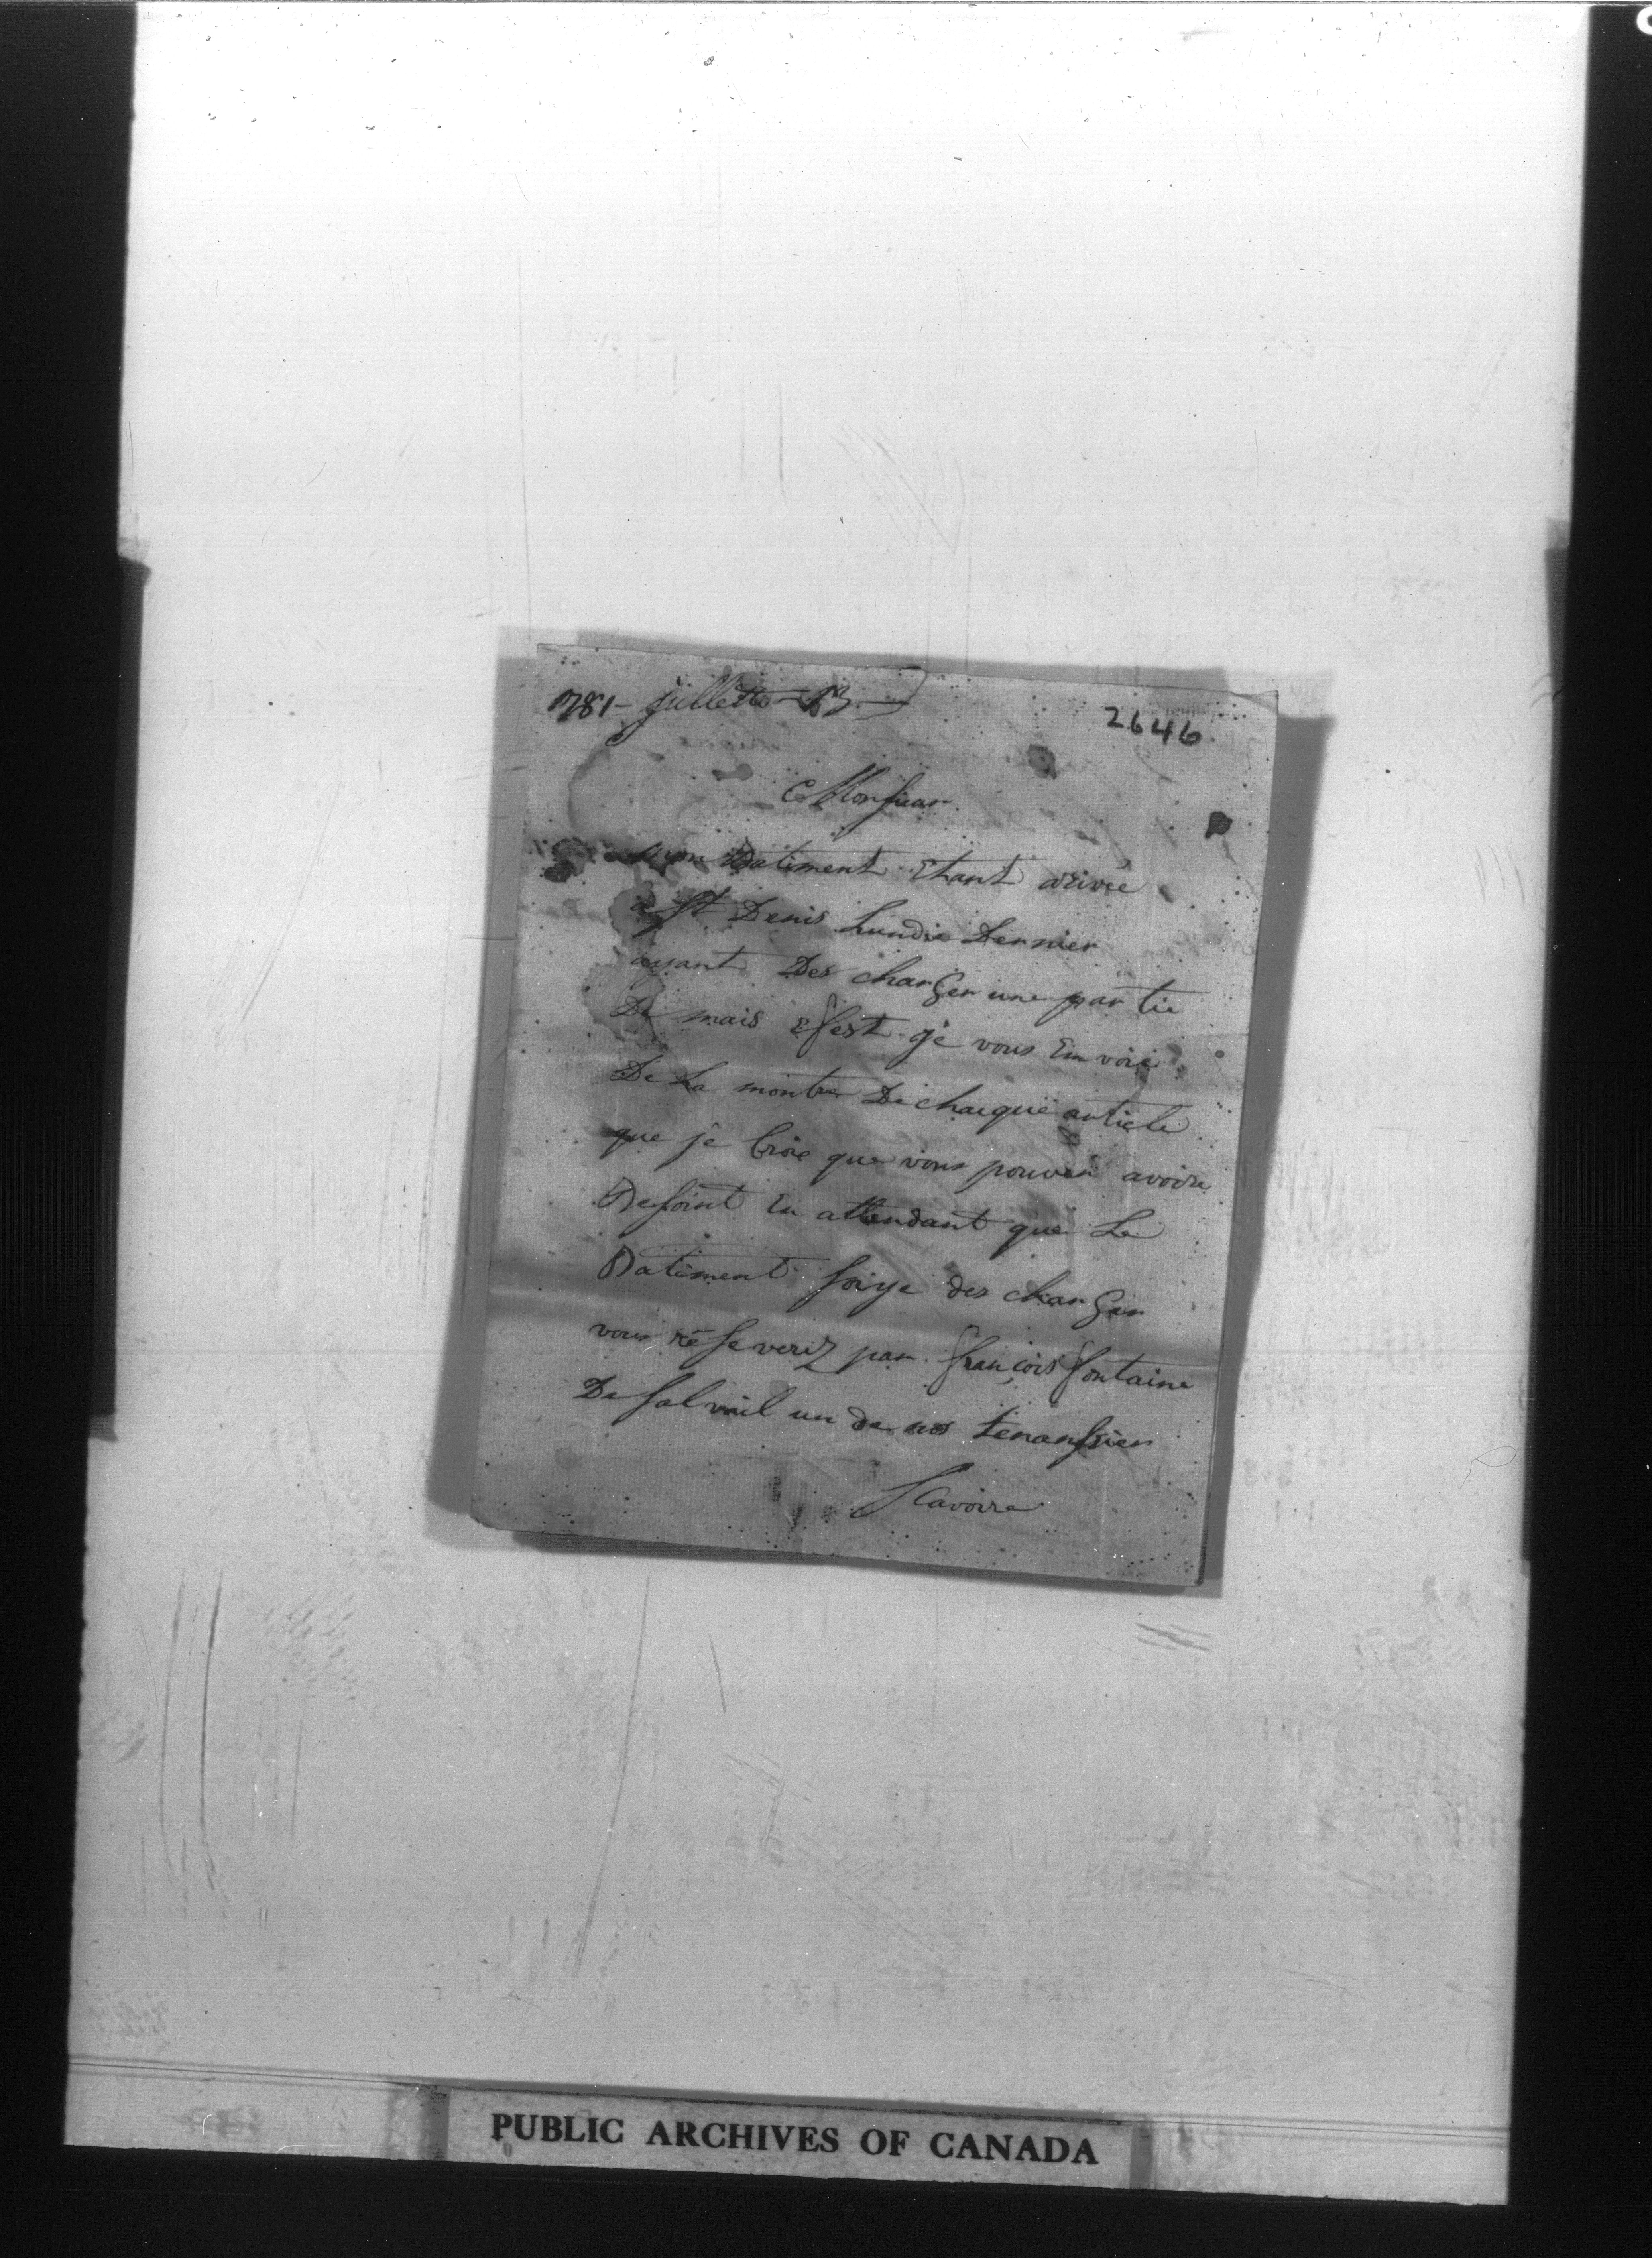 1781 - Jullette - 13 -
2646
Monsieur
mon Batiment Etant arivée
a St Denis Lundie Dernier
ayant Des charger une par tie
De mais efest je vous En voie
De La montre De chaque article
que je Croie que vous pouvez avoire
Besoint En attendant que Le
Batiment soiye des charger
vous reseverez par françois fontaine
De salvail un de nos tenansier
Scavoire
PUBLIC ARCHIVES OF CANADA